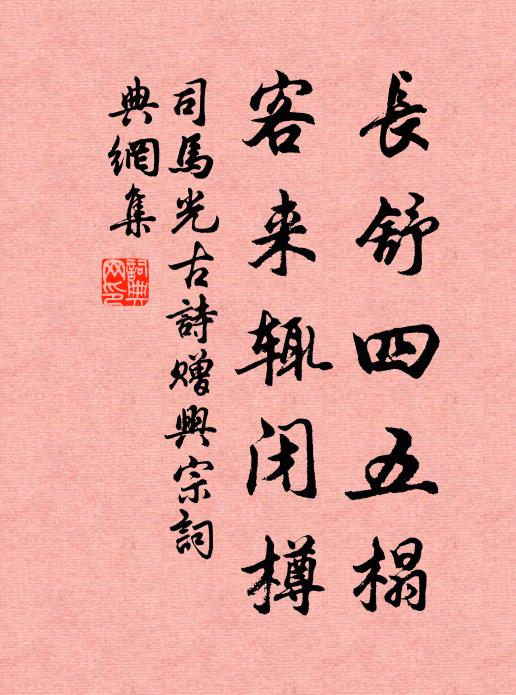 長舒四五榻
客来辄闭樽
司馬光古詩赠興宗詞
典網集
詞典網印